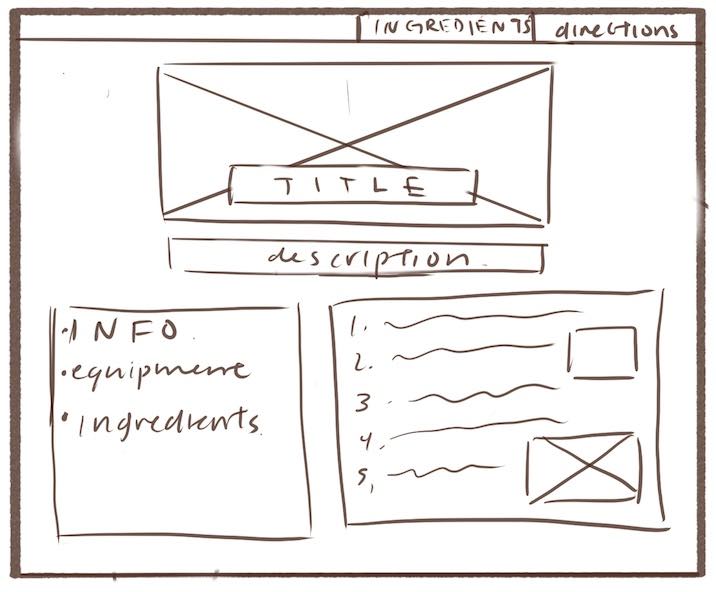 INGREDIENTS directions
TITLE
description
• INFO
• equipment
• ingredients
1.
2.
3.
4.
5,